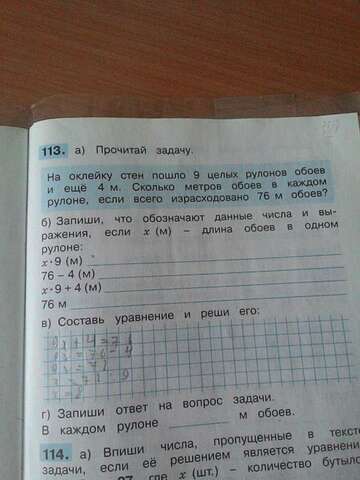 113. а) Прочитай задачу.
На оклейку стен пошло 9 целых рулонов обоев
и ещё 4 м. Сколько метров обоев в каждом
рулоне, если всего израсходовано 76 м обоев?
б) Запиши, что обозначают данные числа и вы-
ражения, если x (м) – длина обоев в одном
рулоне:
x·9 (м)
76 – 4 (м)
x·9 + 4 (м)
76 м
в) Составь уравнение и реши его:
9x+4=76
9x=76-4
г) Запиши ответ на вопрос задачи.
В каждом рулоне ______ м обоев.
114. а) Впиши числа, пропущенные в тексте
задачи, если её решением является уравнение
где x (шт.) – количество